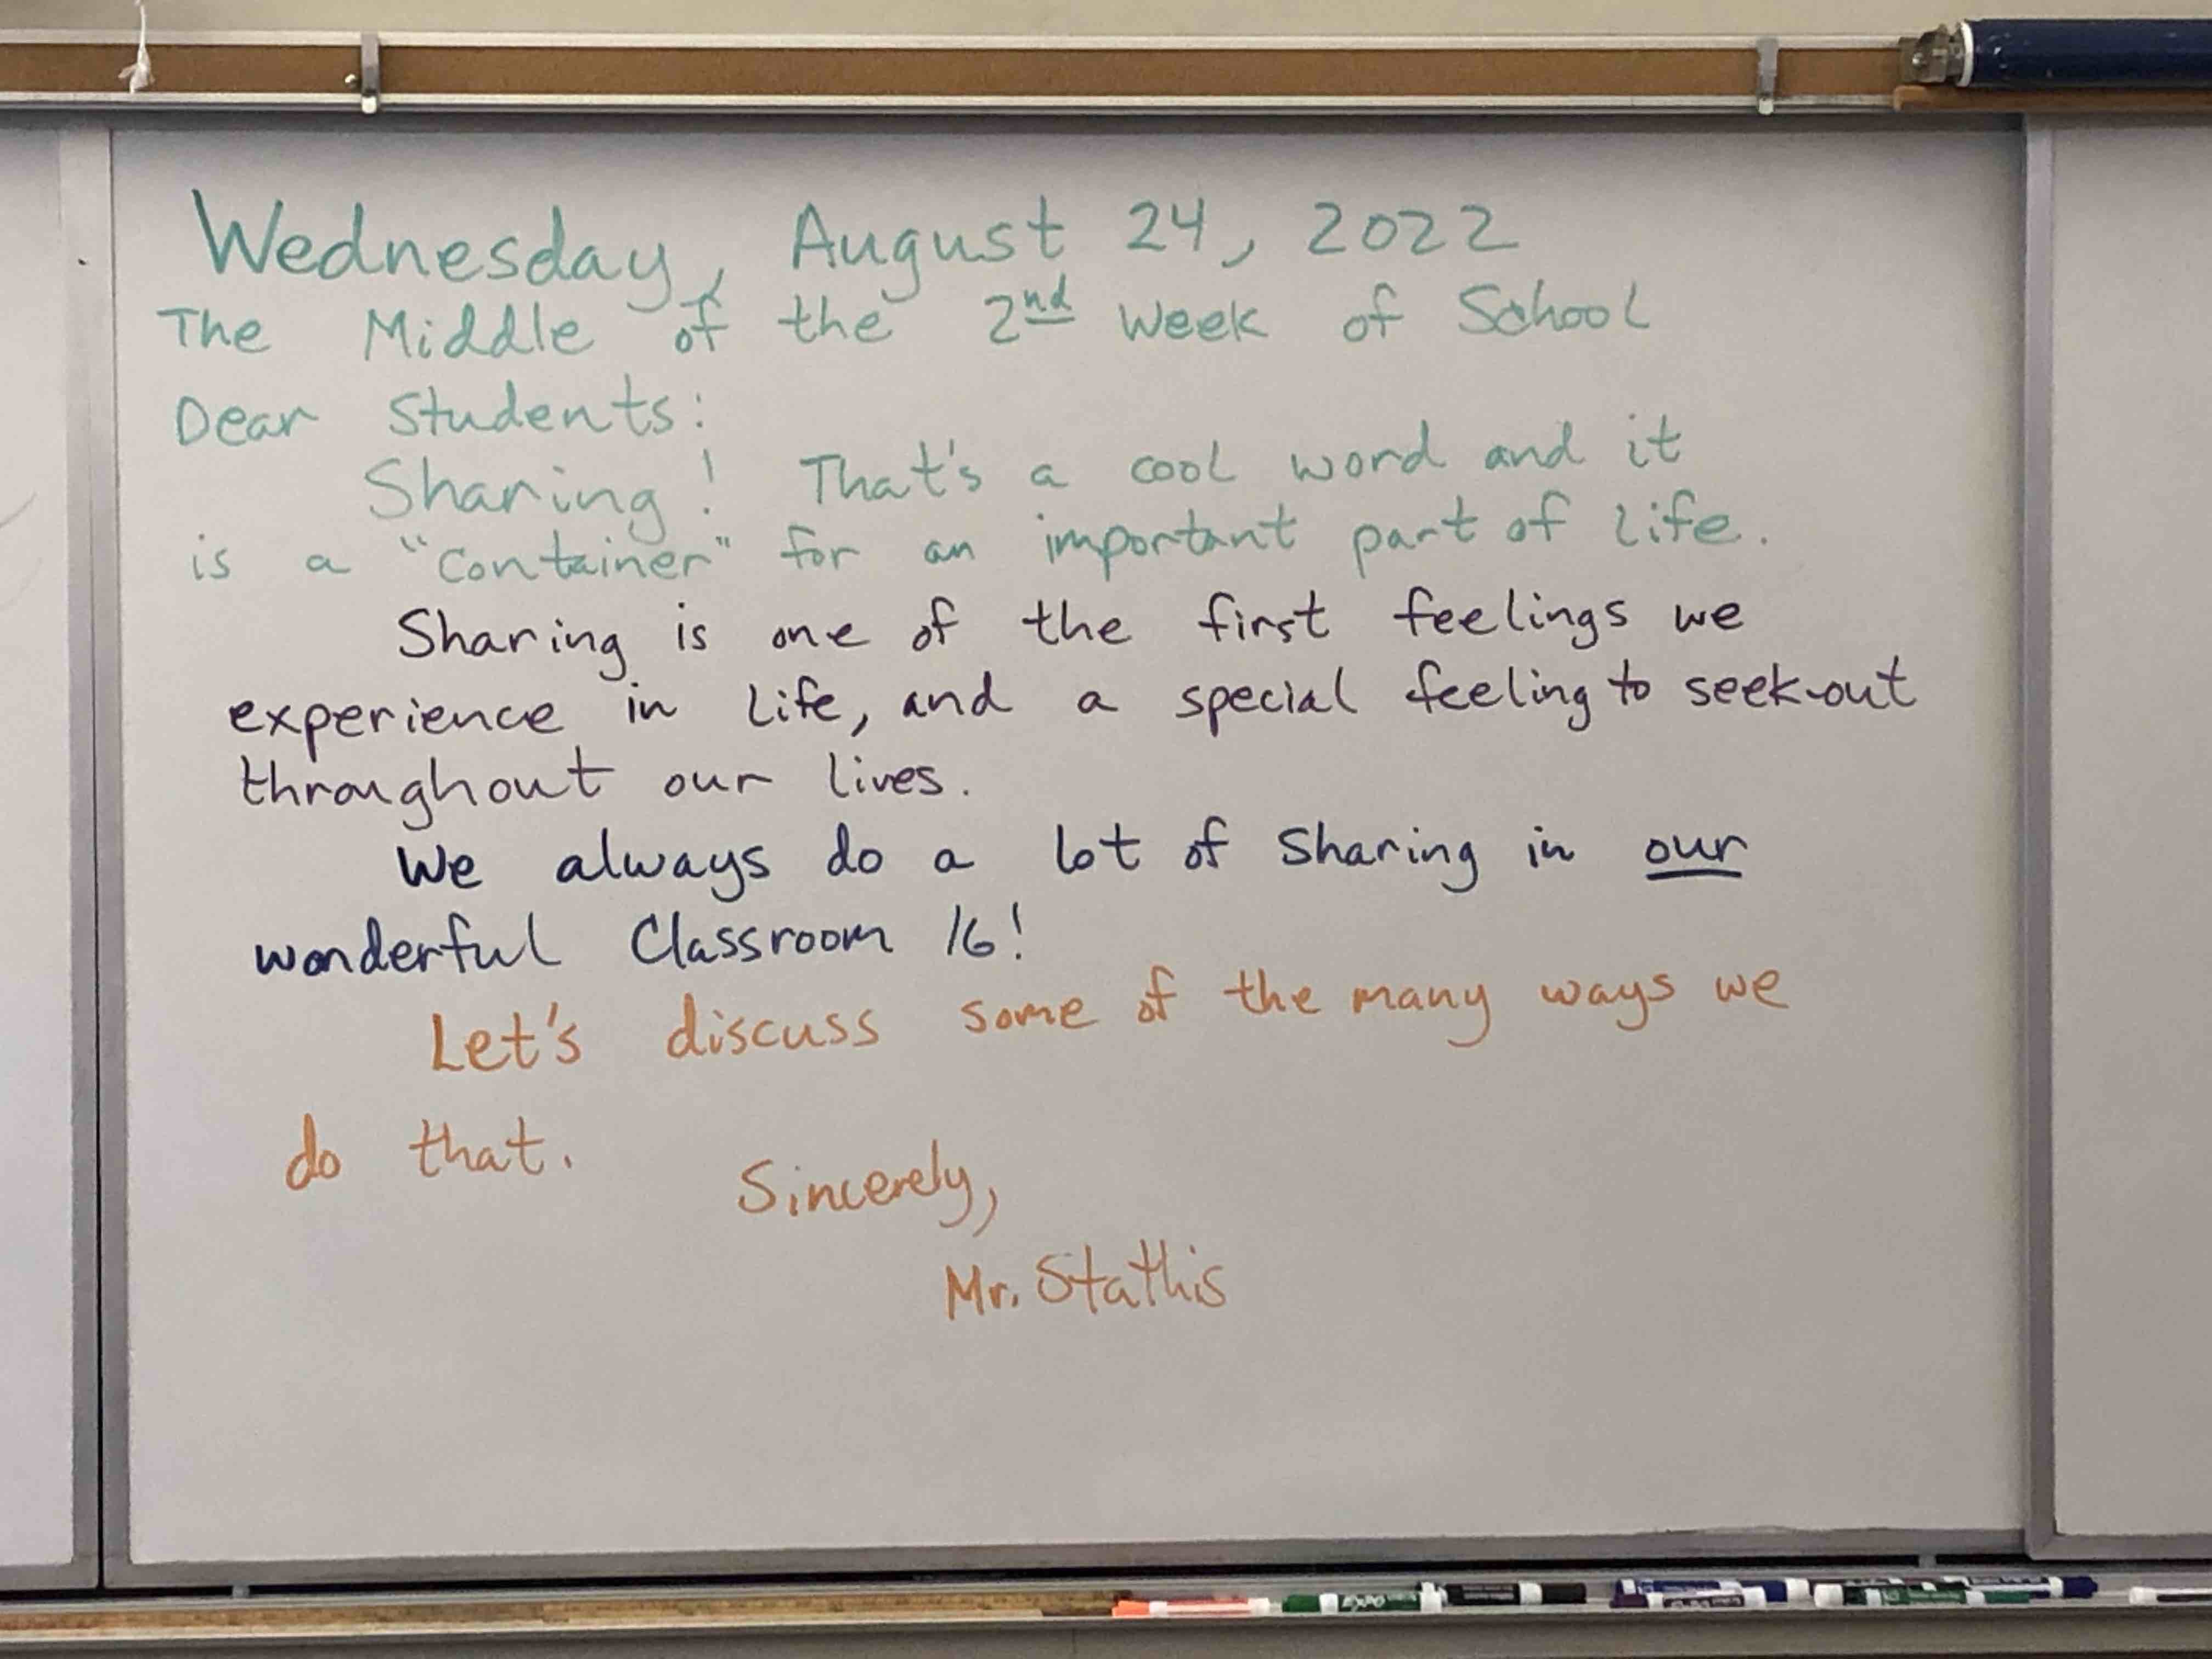 Wednesday, August 24, 2022
The Middle of the 2nd Week of School
Dear Students:
Sharing! That's a cool word and it
is a "container" for an important part of life.
Sharing is one of the first feelings we
experience in life, and a special feeling to seek-out
throughout our lives.
We always do a lot of sharing in our
wonderful Classroom 16!
Let's discuss some of the many ways we
do that.
Sincerely,
Mr. Stathis
EXPO